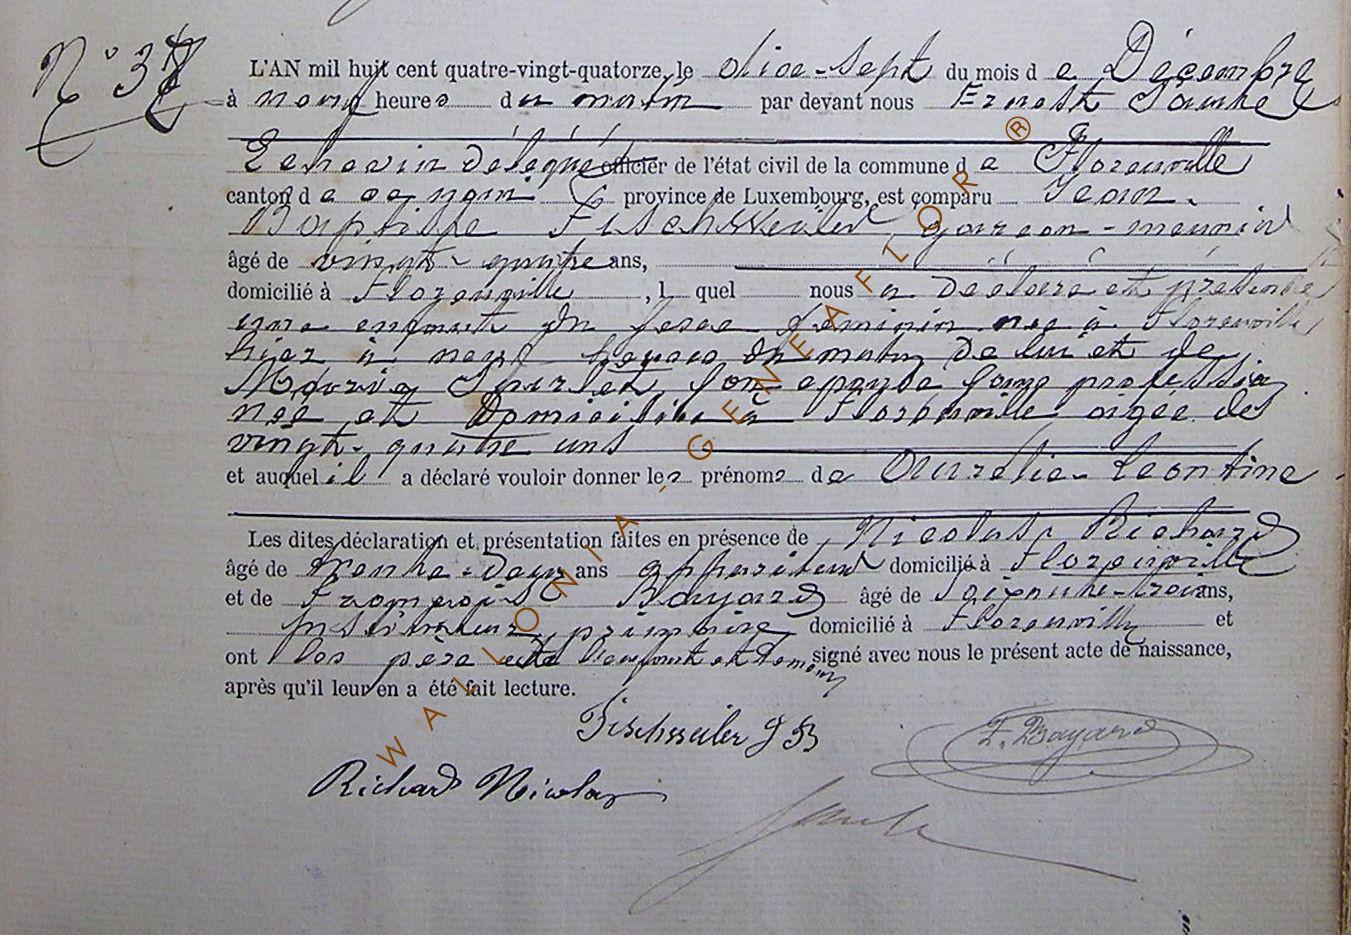 N° 37
L'AN mil huit cent quatre-vingt-quatorze, le dixe-sept du mois de Décembre
à neuf heures du matin par devant nous Ernest
Echevin délégué officier de l'état civil de la commune de Florenville
canton de ce nom province de Luxembourg, est comparu Jean-
Baptiste Fischweiler, garçon-meunier
âgé de vingt-quatre ans,
domicilié à Florenville, lequel nous a déclaré et présenté
une enfant du sexe féminin née à Florenville
hier à neuf heures du matin de lui et de
Marie son épouse sans profession
née et domiciliée à Florenville âgée de
vingt-quatre ans
et auquel il a déclaré vouloir donner les prénoms de Aurélie-Leontine
Les dites déclaration et présentation faites en présence de Nicolas Richard
âgé de trente-deux ans appariteur domicilié à Florenville
et de François Bayard âgé de soixante-trois ans,
instituteur primaire domicilié à Florenville et
ont les père de l'enfant et témoins signé avec nous le présent acte de naissance,
après qu'il leur en a été fait lecture.
Fischweiler J B
F. Bayard
Richard Nicolas
WALLONIA-GENEAFLOR ®